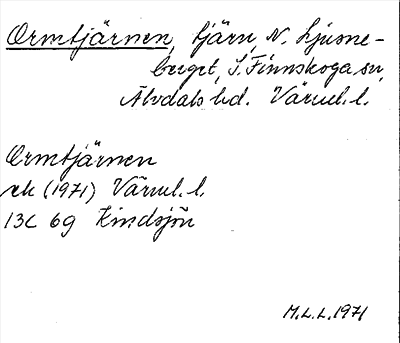 Ormtjärnen, tjärn, N. Ljusne-
berget, S. Finnskoga sn,
Älvdals hd. Värml. l.
Ormtjärnen
rek (1971) Värml. l.
13C 6g Kindsjön
M.L.L. 1971